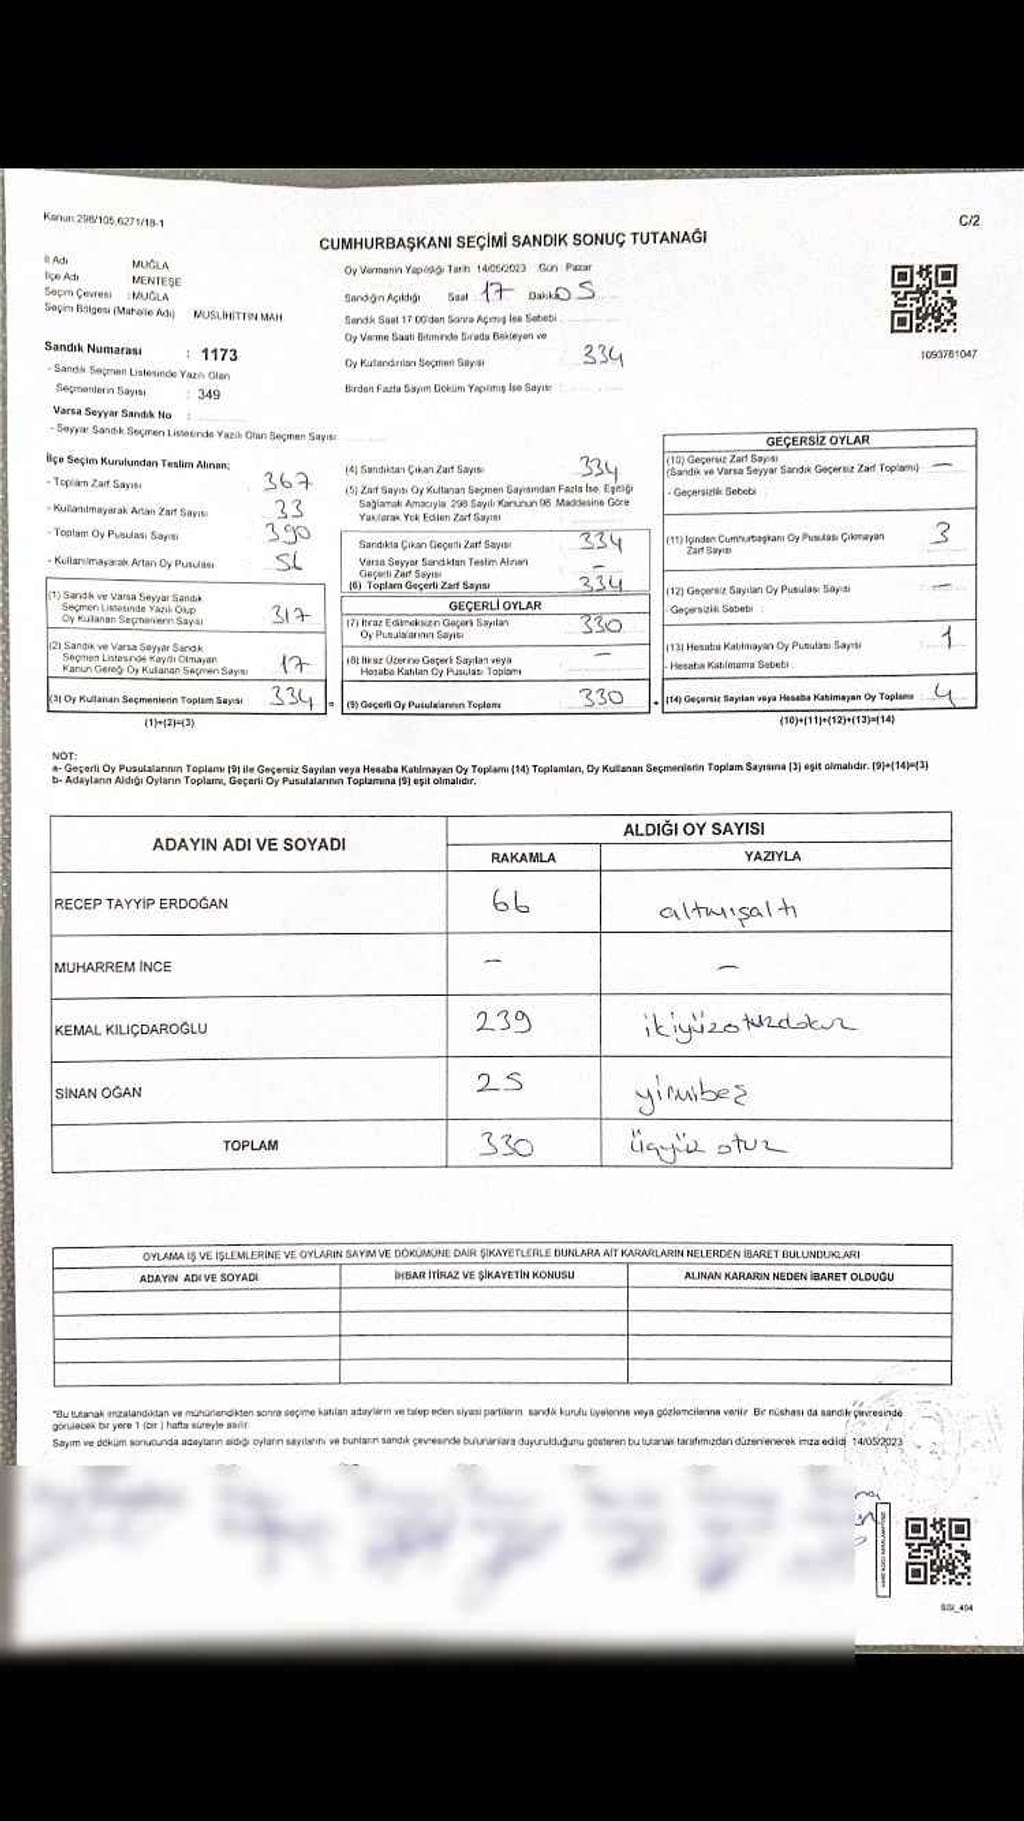 Kanun:298/105,6271/18-1
C/2
CUMHURBAŞKANI SEÇİMİ SANDIK SONUÇ TUTANAĞI
İl Adı MUĞLA
İlçe Adı MENTEŞE
Seçim Çevresi : MUĞLA
Seçim Bölgesi (Mahalle Adı) MUSLİHİTTİN MAH
Sandık Numarası : 1173
- Sandık Seçmen Listesinde Yazılı Olan
Seçmenlerin Sayısı : 349
Varsa Seyyar Sandık No :
- Seyyar Sandık Seçmen Listesinde Yazılı Olan Seçmen Sayısı
Oy Vermenin Yapıldığı Tarih 14/05/2023 Gün : Pazar
Sandığın Açıldığı Saat 17 Dakika 05
Sandık Saat 17:00'den Sonra Açılmış İse Sebebi
Oy Verme Saati Bitiminde Sırada Bekleyen ve
Oy Kullandırılan Seçmen Sayısı 334
Birden Fazla Sayım Döküm Yapılmış İse Sayısı
1093781047
İlçe Seçim Kurulundan Teslim Alınan;
- Toplam Zarf Sayısı 367
- Kullanılmayarak Artan Zarf Sayısı 33
- Toplam Oy Pusulası Sayısı 390
- Kullanılmayarak Artan Oy Pusulası
(1) Sandık ve Varsa Seyyar Sandık
Seçmen Listesinde Yazılı Olup
Oy Kullanan Seçmenlerin Sayısı 317
(2) Sandık ve Varsa Seyyar Sandık
Seçmen Listesinde Kayıtlı Olmayan
Kanun Gereği Oy Kullanan Seçmen Sayısı 17
(3) Oy Kullanan Seçmenlerin Toplam Sayısı 334 =
(1)+(2)=(3)
(4) Sandıktan Çıkan Zarf Sayısı 334
(5) Zarf Sayısı Oy Kullanan Seçmen Sayısından Fazla İse, Eşitliği
Sağlamak Amacıyla 298 Sayılı Kanunun 98. Maddesine Göre
Yakılarak Yok Edilen Zarf Sayısı
Sandıkta Çıkan Geçerli Zarf Sayısı 334
Varsa Seyyar Sandıktan Teslim Alınan
Geçerli Zarf Sayısı –
(6) Toplam Geçerli Zarf Sayısı 334
GEÇERLİ OYLAR
(7) İtiraz Edilmeksizin Geçerli Sayılan
Oy Pusulalarının Sayısı 330
(8) İtiraz Üzerine Geçerli Sayılan veya
Hesaba Katılan Oy Pusulası Toplamı –
(9) Geçerli Oy Pusulalarının Toplamı 330 +
GEÇERSİZ OYLAR
(10) Geçersiz Zarf Sayısı
(Sandık ve Varsa Seyyar Sandık Geçersiz Zarf Toplamı) –
- Geçersizlik Sebebi
(11) İçinden Cumhurbaşkanı Oy Pusulası Çıkmayan
Zarf Sayısı 3
(12) Geçersiz Sayılan Oy Pusulası Sayısı –
- Geçersizlik Sebebi :
(13) Hesaba Katılmayan Oy Pusulası Sayısı 1
- Hesaba Katılmama Sebebi :
(14) Geçersiz Sayılan veya Hesaba Katılmayan Oy Toplamı 4
(10)+(11)+(12)+(13)=(14)
NOT:
a- Geçerli Oy Pusulalarının Toplamı (9) ile Geçersiz Sayılan veya Hesaba Katılmayan Oy Toplamı (14) Toplamları, Oy Kullanan Seçmenlerin Toplam Sayısına (3) eşit olmalıdır. (9)+(14)=(3)
b- Adayların Aldığı Oyların Toplamı, Geçerli Oy Pusulalarının Toplamına (9) eşit olmalıdır.
ADAYIN ADI VE SOYADI
ALDIĞI OY SAYISI
RAKAMLA YAZIYLA
RECEP TAYYİP ERDOĞAN 66 altmışaltı
MUHARREM İNCE – –
KEMAL KILIÇDAROĞLU 239 ikiyüzotuzdokuz
SİNAN OĞAN 25 yirmibeş
TOPLAM 330 üçyüz otuz
OYLAMA İŞ VE İŞLEMLERİNE VE OYLARIN SAYIM VE DÖKÜMÜNE DAİR ŞİKAYETLERLE BUNLARA AİT KARARLARIN NELERDEN İBARET BULUNDUKLARI
ADAYIN ADI VE SOYADI İHBAR İTİRAZ VE ŞİKAYETİN KONUSU ALINAN KARARIN NEDEN İBARET OLDUĞU
*Bu tutanak imzalandıktan ve mühürlendikten sonra seçime katılan adayların ve talep eden siyasi partilerin sandık kurulu üyelerine veya gözlemcilerine verilir. Bir nüshası da sandık çevresinde
görülecek bir yere 1 (bir) hafta süreyle asılır.
Sayım ve döküm sonucunda adayların aldığı oyların sayılarını ve bunların sandık çevresinde bulunanlara duyurulduğunu gösteren bu tutanak tarafımızdan düzenlenerek imza edildi 14/05/2023